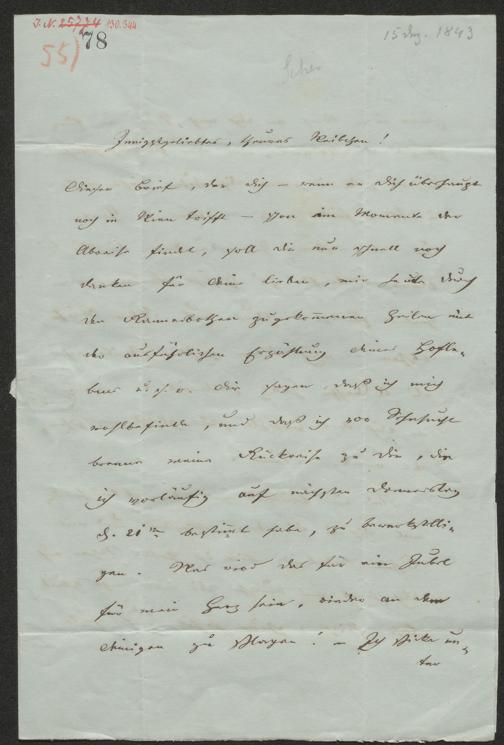 I. N. 25724 130.544
78
55)
15 Dez. 1843
Innigstgeliebtes, theures Weibchen!
Dieser Brief, der Dich – wenn er Dich überhaupt
noch in Wien trifft – schon im Momente der
Abreise findet, soll dir nur schnell noch
danken für deine lieben, mir heute durch
den Kammerbothen zugekommenen Zeilen mit
der ausführlichen Erzählung deines Hofle-
bens u.s.w. Dir sagen, daß ich mich
wohlbefinde, und daß ich vor Sehnsucht
brenne meine Rückreise zu dir, die
ich vorläufig auf nächsten Donnerstag
d. 21ten bestimmt habe, zu bewerkstelli-
gen. Was wird das für ein Jubel
für mein Herz sein, wieder an dem
Deinigen zu schlagen! – Ich sitze un-
ter